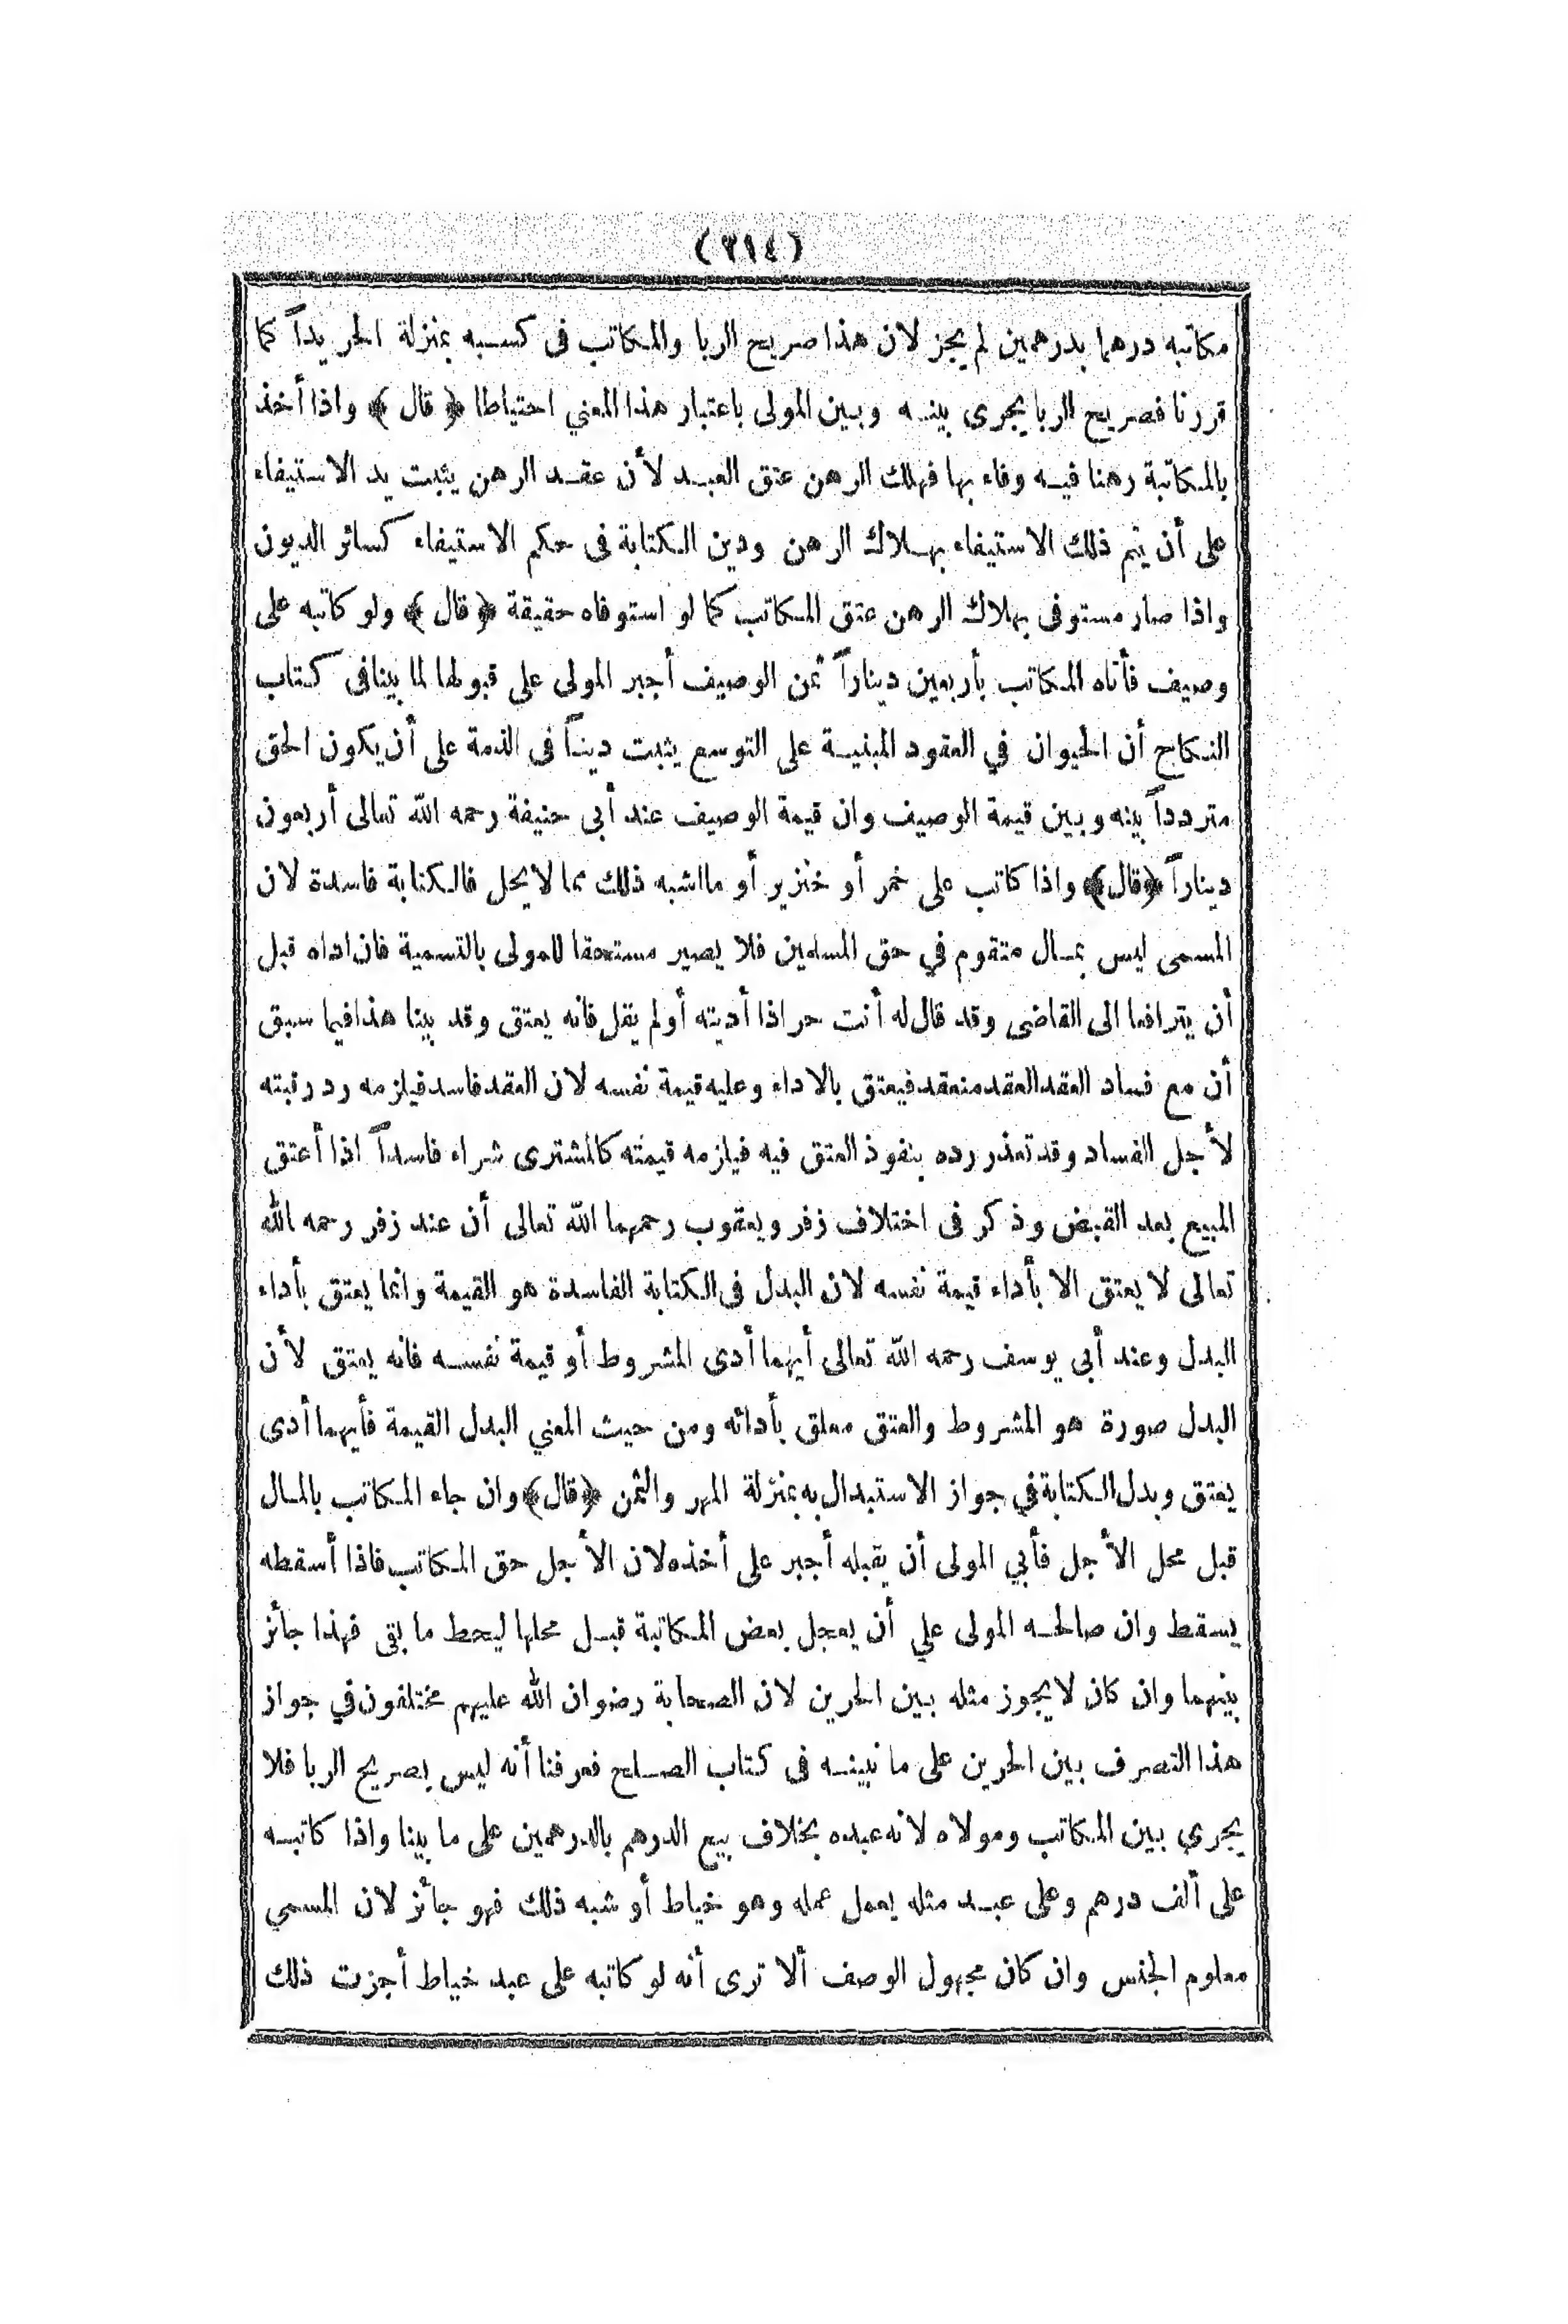 (٢١٤)
مكاتبه درهما بدرهمين لم يجز لان هذا صريح الربا والمكاتب فى كسبه بمنزلة الحر يداً كما
قررنا فصريح الربا يجرى بينه وبين المولى باعتبار هذا المعني احتياطا ﴿ قال ﴾ واذا أخذ
بالمكاتبة رهنا فيه وفاء بها فهلك الرهن عتق العبد لأن عقد الرهن يثبت يد الاستيفاء
على أن يتم ذلك الاستيفاء بهلاك الرهن ودين الكتابة فى حكم الاستيفاء كسائر الديون
واذا صار مستوفى بهلاك الرهن عتق المكاتب كما لو استوفاه حقيقة ﴿ قال ﴾ ولو كاتبه على
وصيف فأتاه المكاتب بأربعين ديناراً ثمن الوصيف أجبر المولى على قبولها لما بينا فى كتاب
النكاح أن الحيوان في العقود المبنية على التوسع يثبت ديناً فى الذمة على أن يكون الحق
متردداً بينه وبين قيمة الوصيف وان قيمة الوصيف عند أبى حنيفة رحمه الله تعالى أربعون
ديناراً ﴿قال﴾ واذا كاتب على خمر أو خنزير أو مااشبه ذلك مما لا يحل فالكتابة فاسدة لان
المسمى ليس بمال متقوم في حق المسلمين فلا يصير مستحقا للمولى بالتسمية فان اداه قبل
أن يترافعا الى القاضى وقد قال له أنت حر اذا أديته أو لم يقل فانه يعتق وقد بينا هذا فيما سبق
أن مع فساد العقد العقد منعقد فيعتق بالاداء وعليه قيمة نفسه لان العقد فاسد فيلزمه رد رقبته
لأجل الفساد وقد تعذر رده بنفوذ العتق فيه فيلزمه قيمته كالمشترى شراء فاسداً اذا أعتق
المبيع بعد القبض وذكر فى اختلاف زفر ويعقوب رحمهما الله تعالى أن عند زفر رحمه الله
تعالى لا يعتق الا بأداء قيمة نفسه لان البدل فى الكتابة الفاسدة هو القيمة وانما يعتق بأداء
البدل وعند أبى يوسف رحمه الله تعالى أيهما أدى المشروط أو قيمة نفسه فانه يعتق لأن
البدل صورة هو المشروط والعتق معلق بأدائه ومن حيث المعني البدل القيمة فأيهما أدى
يعتق وبدل الكتابة في جواز الاستبدال به بمنزلة المهر والثمن ﴿قال﴾ وان جاء المكاتب بالمال
قبل محل الأجل فأبي المولى أن يقبله أجبر على أخذه لان الأجل حق المكاتب فاذا أسقطه
يسقط وان صالحه المولى علي أن يعجل بعض المكاتبة قبل محلها ليحط ما بقى فهذا جائز
بينهما وان كان لا يجوز مثله بين الحرين لان الصحابة رضوان الله عليهم مختلفون في جواز
هذا التصرف بين الحرين على ما نبينه فى كتاب الصلح فعرفنا أنه ليس بصريح الربا فلا
يجري بين المكاتب ومولاه لانه عبده بخلاف بيع الدرهم بالدرهمين على ما بينا واذا كاتبه
على ألف درهم وعلى عبد مثله يعمل عمله وهو خياط أو شبه ذلك فهو جائز لان المسمي
معلوم الجنس وان كان مجهول الوصف ألا ترى أنه لو كاتبه على عبد خياط أجزت ذلك